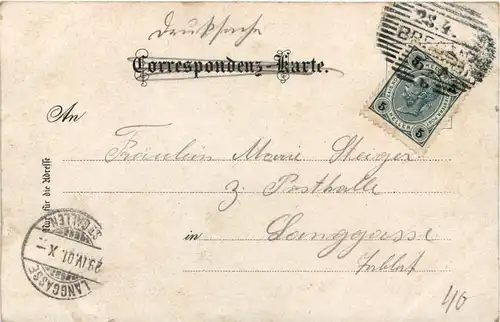 Drucksache
Correspondenz-Karte.
23.4.
BRE
5 HELLER 5
An
Fräulein Marie Steiger
z. Posthalle
in Langgasse
Tablat
Nur für die Adresse
ST. GALLEN
29.IV.01.X
LANGGASSE
40